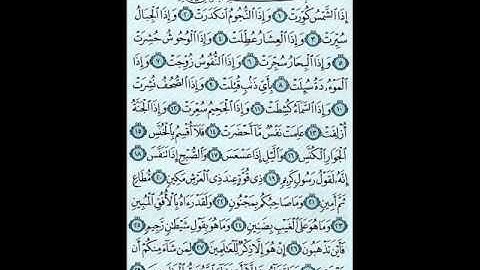 إِذَا الشَّمْسُ كُوِّرَتْ ١ وَإِذَا النُّجُومُ انكَدَرَتْ ٢ وَإِذَا الْجِبَالُ
سُيِّرَتْ ٣ وَإِذَا الْعِشَارُ عُطِّلَتْ ٤ وَإِذَا الْوُحُوشُ حُشِرَتْ
٥ وَإِذَا الْبِحَارُ سُجِّرَتْ ٦ وَإِذَا النُّفُوسُ زُوِّجَتْ ٧ وَإِذَا
الْمَوْءُۥدَةُ سُئِلَتْ ٨ بِأَيِّ ذَنۢبٍ قُتِلَتْ ٩ وَإِذَا الصُّحُفُ نُشِرَتْ
١٠ وَإِذَا السَّمَآءُ كُشِطَتْ ١١ وَإِذَا الْجَحِيمُ سُعِّرَتْ ١٢ وَإِذَا الْجَنَّةُ
أُزْلِفَتْ ١٣ عَلِمَتْ نَفْسٌ مَّآ أَحْضَرَتْ ١٤ فَلَآ أُقْسِمُ بِالْخُنَّسِ ١٥
الْجَوَارِ الْكُنَّسِ ١٦ وَاللَّيْلِ إِذَا عَسْعَسَ ١٧ وَالصُّبْحِ إِذَا تَنَفَّسَ ١٨
إِنَّهُۥ لَقَوْلُ رَسُولٍ كَرِيمٍ ١٩ ذِى قُوَّةٍ عِندَ ذِى الْعَرْشِ مَكِينٍ ٢٠ مُّطَاعٍ
ثَمَّ أَمِينٍ ٢١ وَمَا صَاحِبُكُم بِمَجْنُونٍ ٢٢ وَلَقَدْ رَءَاهُ بِالْأُفُقِ الْمُبِينِ
٢٣ وَمَا هُوَ عَلَى الْغَيْبِ بِضَنِينٍ ٢٤ وَمَا هُوَ بِقَوْلِ شَيْطَٰنٍ رَّجِيمٍ ٢٥
فَأَيْنَ تَذْهَبُونَ ٢٦ إِنْ هُوَ إِلَّا ذِكْرٌ لِّلْعَٰلَمِينَ ٢٧ لِمَن شَآءَ مِنكُمْ أَن